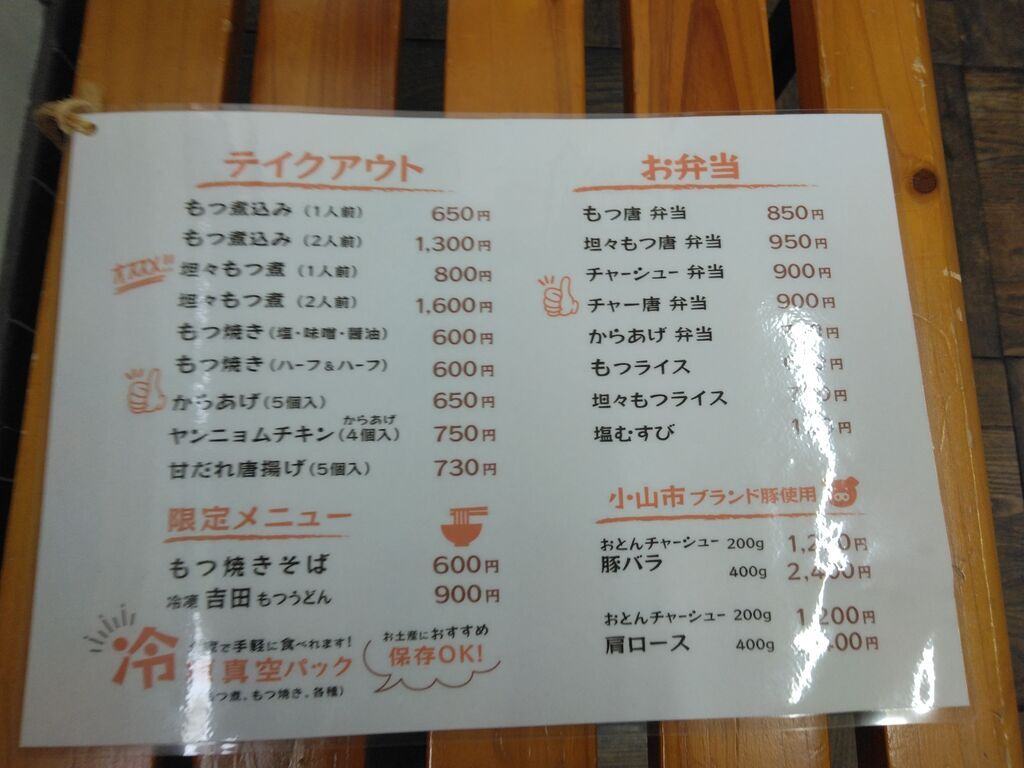 テイクアウト
もつ煮込み（1人前） 650円
もつ煮込み（2人前） 1,300円
オススメ!!
坦々もつ煮（1人前） 800円
坦々もつ煮（2人前） 1,600円
もつ焼き（塩・味噌・醤油） 600円
もつ焼き（ハーフ&ハーフ） 600円
からあげ（5個入） 650円
からあげ
ヤンニョムチキン（4個入） 750円
甘だれ唐揚げ（5個入） 730円
限定メニュー
もつ焼きそば 600円
冷凍 吉田もつうどん 900円
冷
で手軽に食べれます!
真空パック
つ煮、もつ焼き、各種）
お土産におすすめ
保存OK!
お弁当
もつ唐 弁当 850円
坦々もつ唐 弁当 950円
チャーシュー 弁当 900円
チャー唐 弁当 900円
からあげ 弁当 円
もつライス
坦々もつライス 円
塩むすび 円
小山市 ブランド豚使用
おとんチャーシュー 200g
豚バラ 400g 2,400円
おとんチャーシュー 200g 1,200円
肩ロース 400g